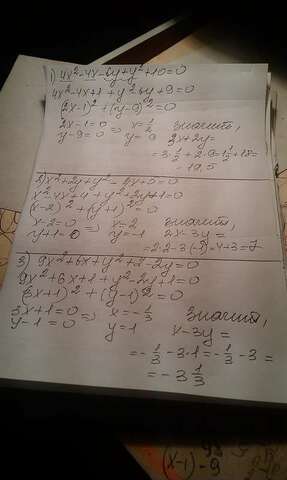 1) 4x²-4x-6y+y²+10=0
4x²-4x+1+y²-6y+9=0
(2x-1)²+(y-9)²=0
2x-1=0 => x=1/2 значит,
y-9=0 y=9 3x+2y=
=3·1/2+2·9=1 1/2+18=
=19,5
2) x²+2y+y²-4x+5=0
x²-4x+4+y²+2y+1=0
(x-2)²+(y+1)²=0
x-2=0 => x=2 значит,
y+1=0 y=-1 2x-3y=
=2·2-3(-1)=4+3=7
3) 9x²+6x+y²+2-2y=0
9x²+6x+1+y²-2y+1=0
(3x+1)²+(y-1)²=0
3x+1=0 => x=-1/3 значит,
y-1=0 y=1 x-3y=
=-1/3-3·1=-1/3-3=
=-3 1/3
(x-1)-9